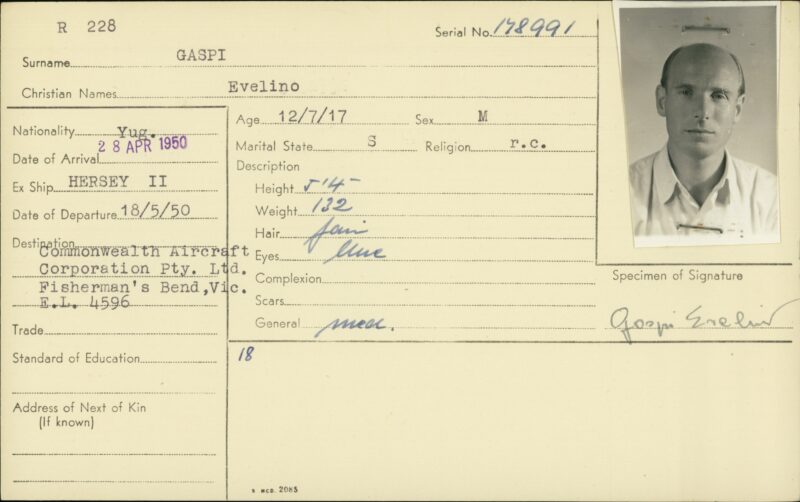 R 228
Serial No. 178991
Surname GASPI
Christian Names Evelino
Nationality Yug.
Date of Arrival 28 APR 1950
Ex Ship HERSEY II
Date of Departure 18/5/50
Destination Commonwealth Aircraft
Corporation Pty. Ltd.
Fisherman's Bend, Vic.
E.L. 4596
Trade
Standard of Education
Address of Next of Kin
(If known)
Age 12/7/17 Sex M
Marital State S Religion r.c.
Description
Height 5'4"
Weight 132
Hair fair
Eyes blue
Complexion
Scars
General med.
18
Specimen of Signature
Gaspi Evelino
2085